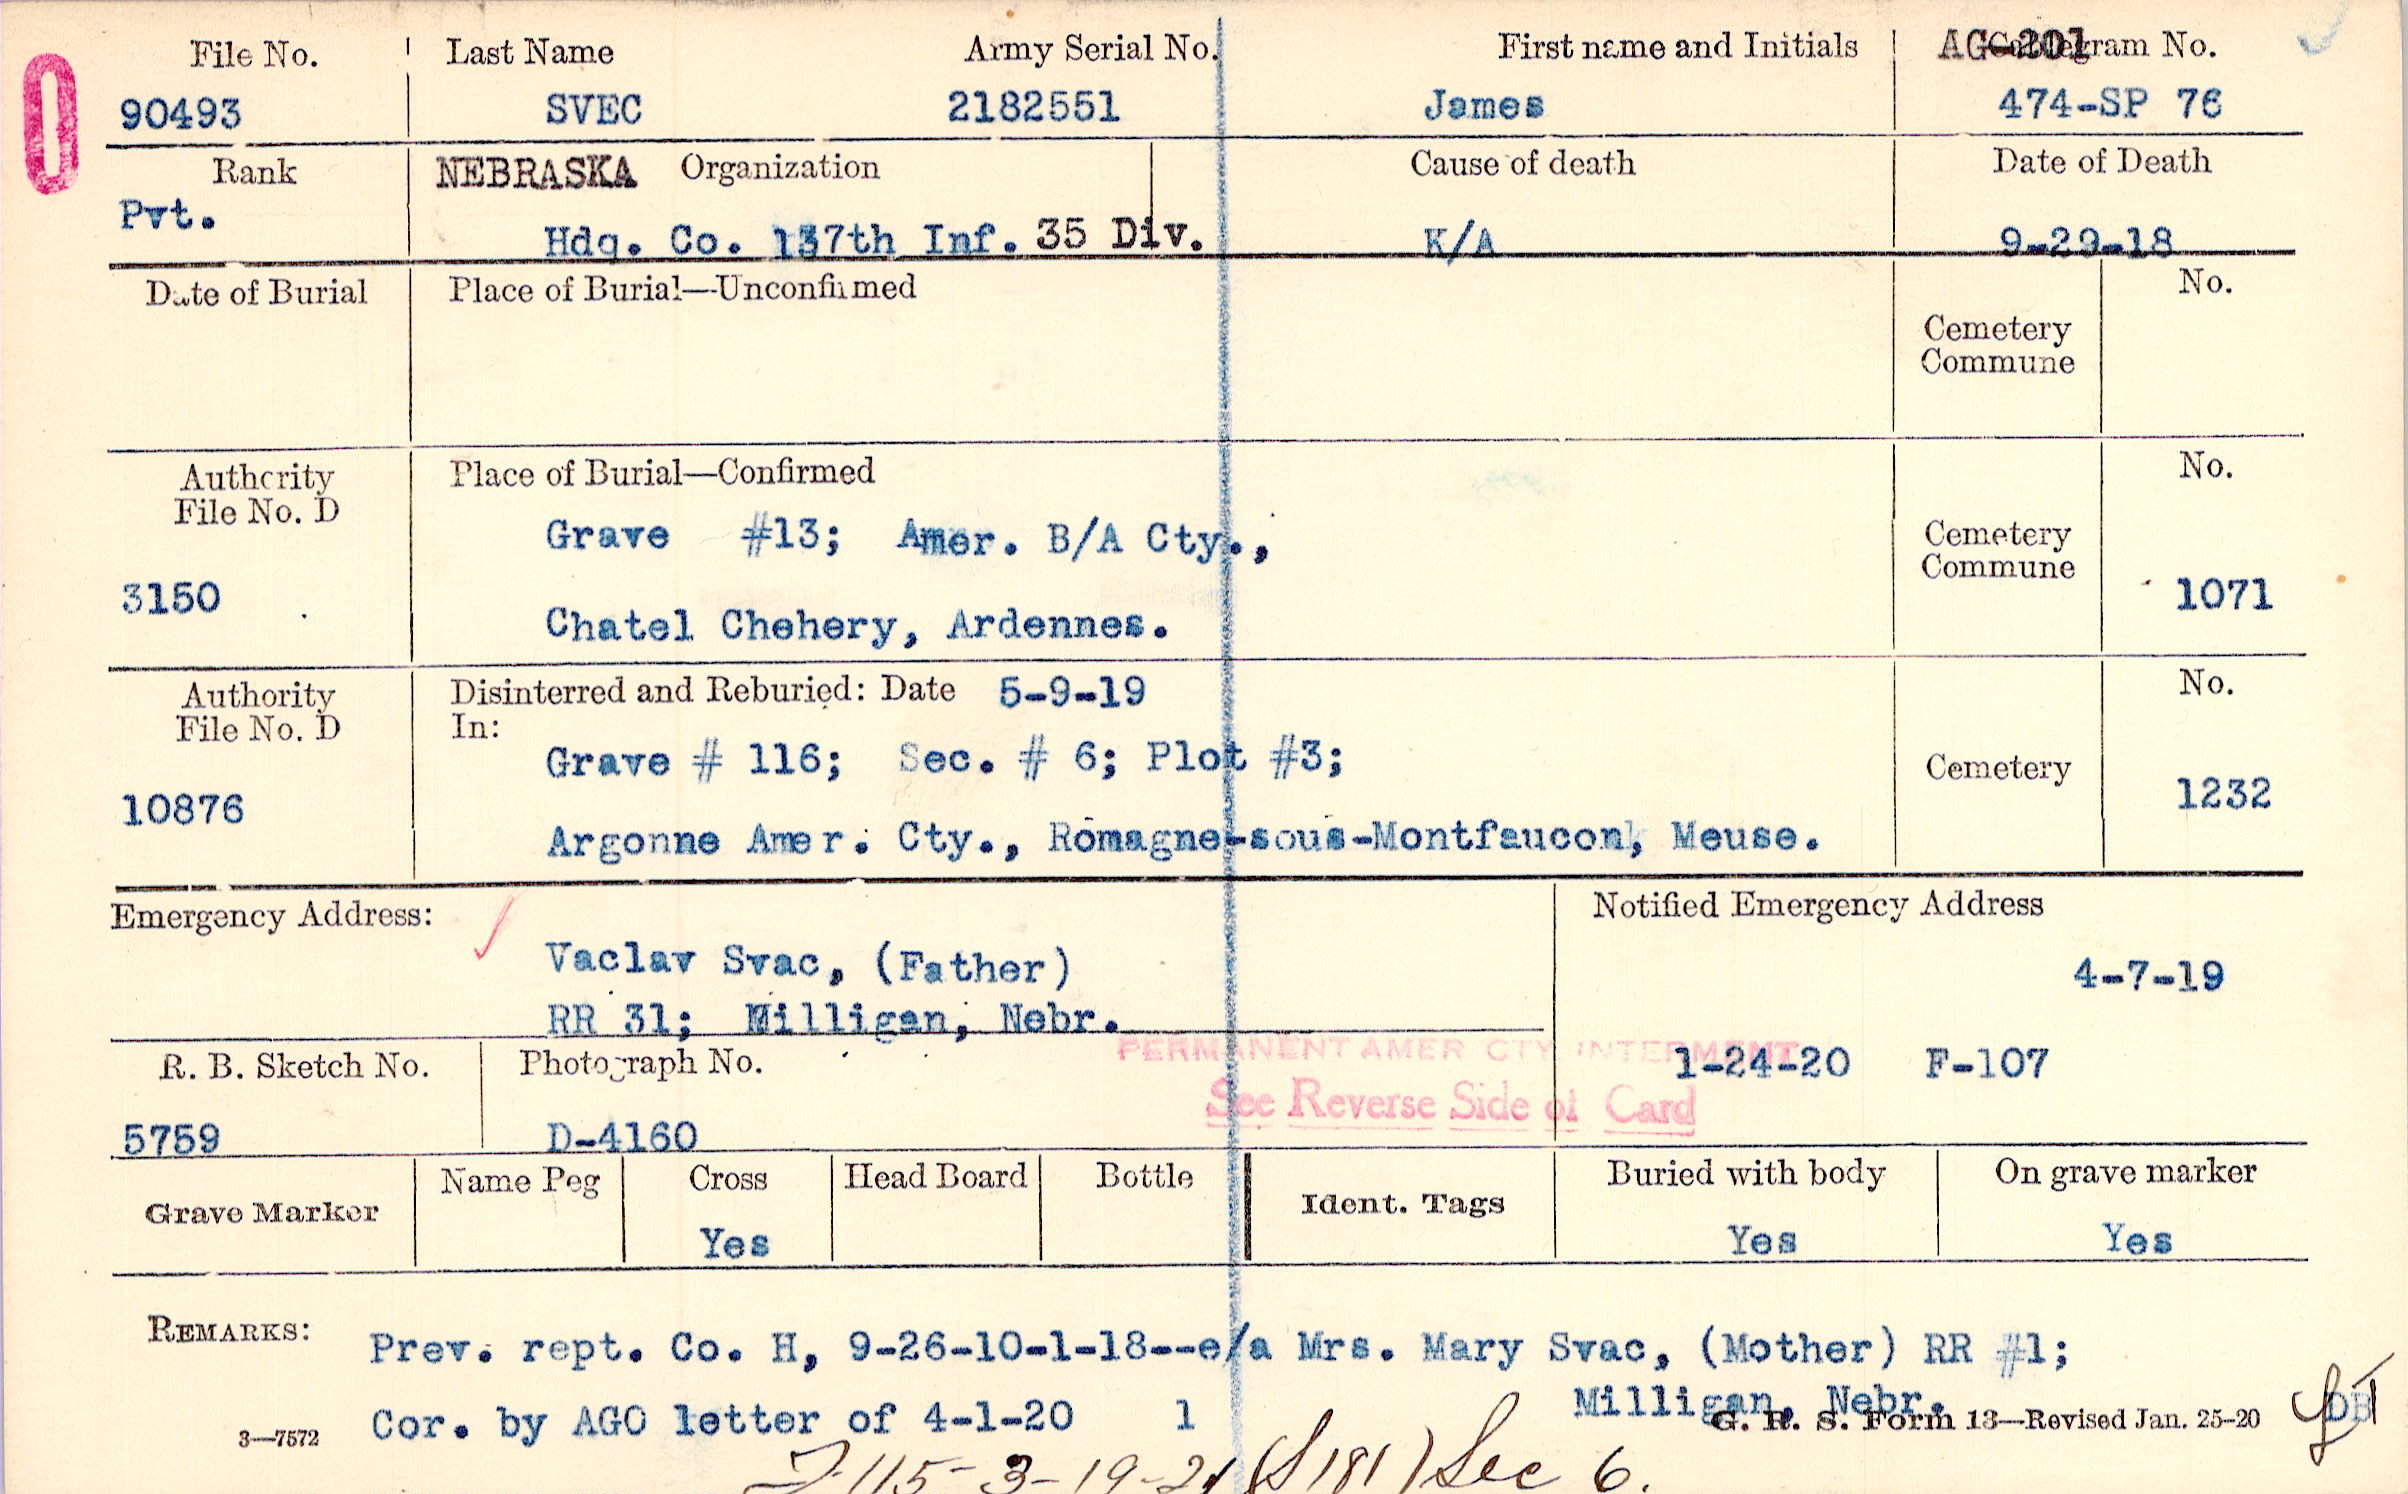 File No. Last Name Army Serial No. First name and Initials AG-201 Cablegram No.
90493 SVEC 2182551 James 474-SP 76
Rank NEBRASKA Organization Cause of death Date of Death
Pvt. Hdq. Co. 137th Inf. 35 Div. K/A 9-29-18
Date of Burial Place of Burial—Unconfirmed No.
Cemetery
Commune
Authority Place of Burial—Confirmed No.
File No. D
Grave #13; Amer. B/A Cty., Cemetery
Commune
3150 1071
Chatel Chehery, Ardennes.
Authority Disinterred and Reburied: Date 5-9-19 No.
File No. D In:
Grave # 116; Sec. # 6; Plot #3; Cemetery
10876 1232
Argonne Amer. Cty., Romagne-sous-Montfaucon, Meuse.
Emergency Address: Notified Emergency Address
Vaclav Svac, (Father) 4-7-19
RR 31; Milligan, Nebr.
PERMANENT AMER CTY INTERMENT
R. B. Sketch No. Photograph No. 1-24-20 F-107
See Reverse Side of Card
5759 D-4160
Grave Marker Name Peg Cross Head Board Bottle Ident. Tags Buried with body On grave marker
Yes Yes Yes
REMARKS: Prev. rept. Co. H, 9-26-10-1-18--e/a Mrs. Mary Svac, (Mother) RR #1;
Milligan, Nebr.
Cor. by AGO letter of 4-1-20 1
3—7572 G. R. S. Form 13—Revised Jan. 25-20
115-3-19-21 (S181) Sec 6.